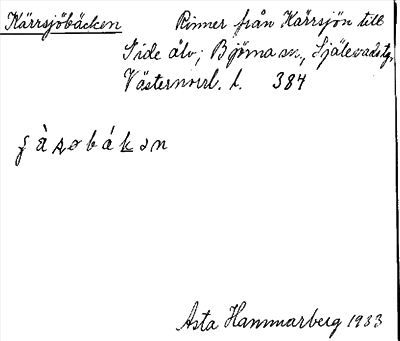 Kärrsjöbäcken Rinner från Kärrsjön till
Gide älv; Björna sn., Själevads tg.
Västernorrl. l. 384
Asta Hammarberg 1933